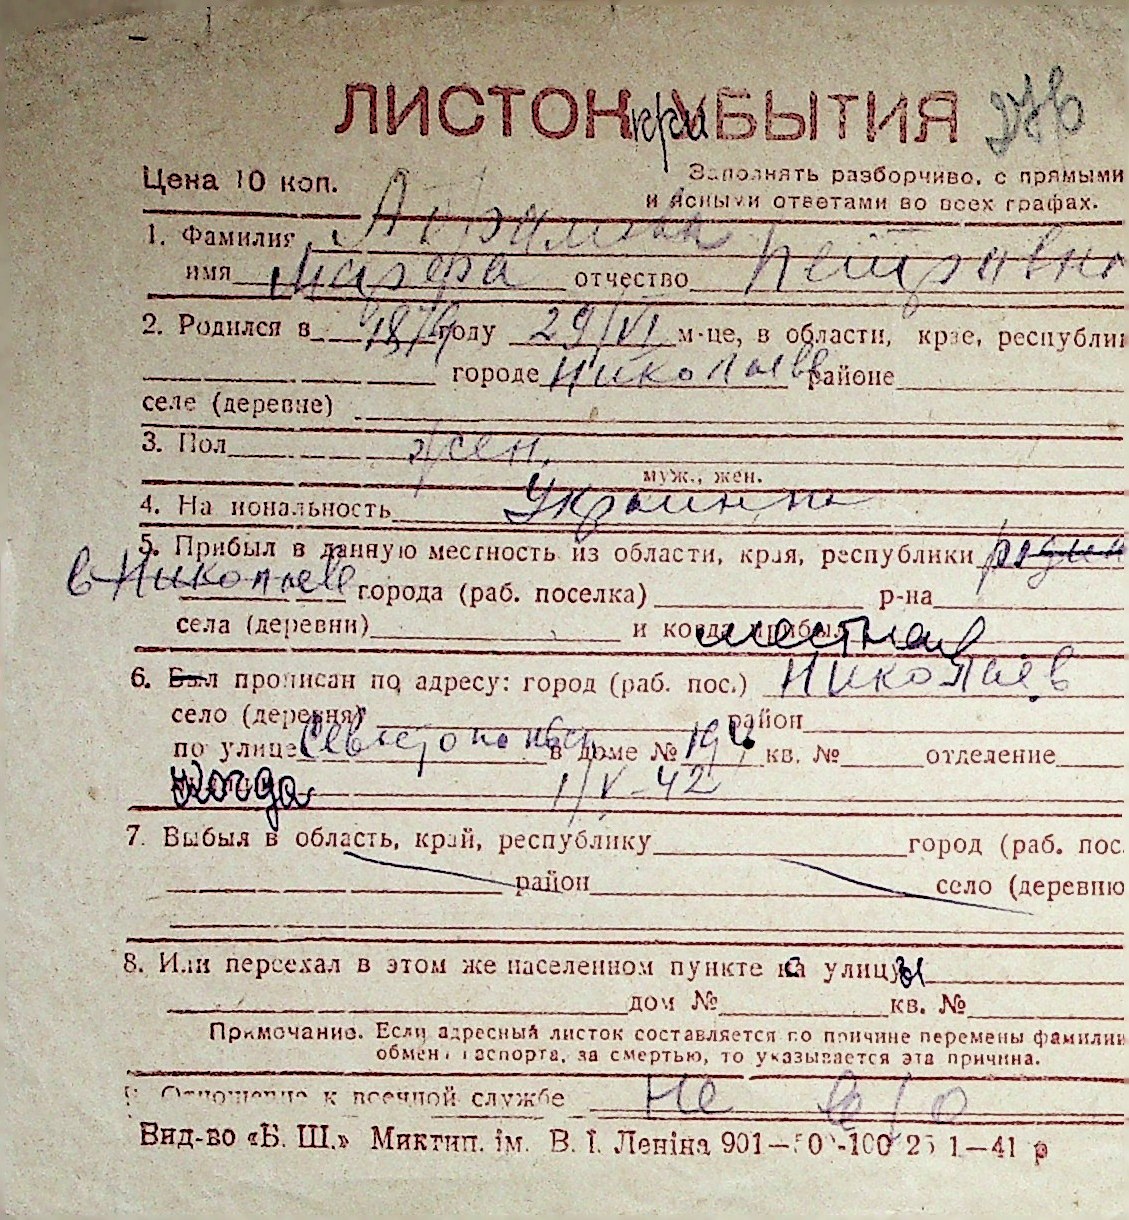 ЛИСТОК при УБЫТИЯ
Цена 10 коп. Заполнять разборчиво, с прямыми
и ясными ответами во всех графах.
1. Фамилия
имя отчество Петровна
2. Родился в 1879 году 29/VI м-це, в области, крае, республи
городе Николаев районе
селе (деревне)
3. Пол жен.
муж., жен.
4. На иональность Украинка
5. Прибыл в данную местность из области, края, республики родил
в Николаеве города (раб. поселка) р-на
села (деревни) и когда прибыл местная
6. Был прописан по адресу: город (раб. пос.) Николаев
село (деревня) район
по улице в доме № кв. № отделение
Когда 1/V-42
7. Выбыл в область, край, республику город (раб. пос.
район село (деревню
8. Или переехал в этом же населенном пункте с улицы
дом № кв. №
Примечание. Если адресный листок составляется по причине перемены фамилии
обмен паспорта, за смертью, то указывается эта причина.
9. Отношение к военной службе Не
Вид-во «Б. Ш.» Миктип. ім. В. І. Леніна 901—50 -100 25 1—41 р